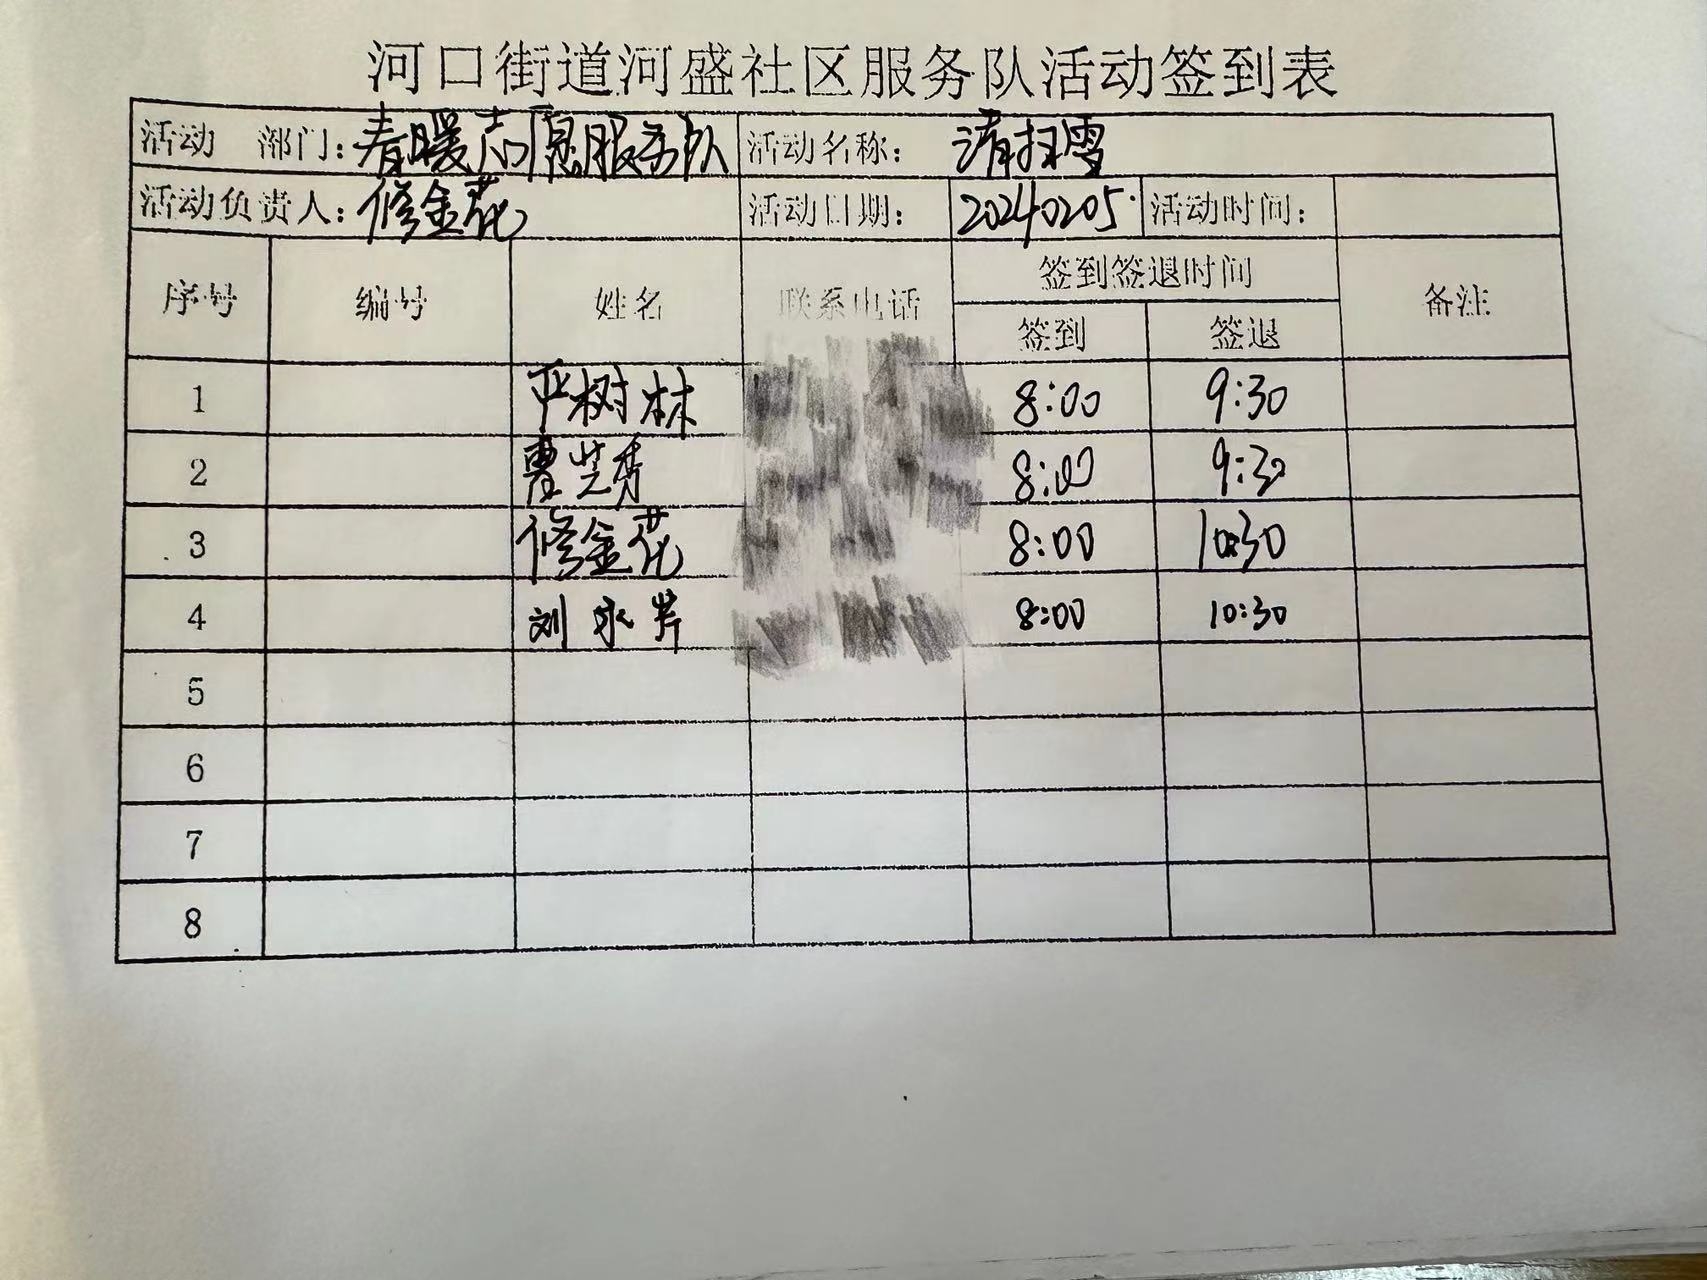 河口街道河盛社区服务队活动签到表
活动 部门：春暖志愿服务队 活动名称： 清扫雪
活动负责人：修金花 活动日期： 20240205 活动时间：
序号 编号 姓名 联系电话 签到签退时间 备注
签到 签退
1 严树林 8:00 9:30
2 芝秀 8:00 9:30
3 修金花 8:00 10:30
4 刘永芹 8:00 10:30
5
6
7
8